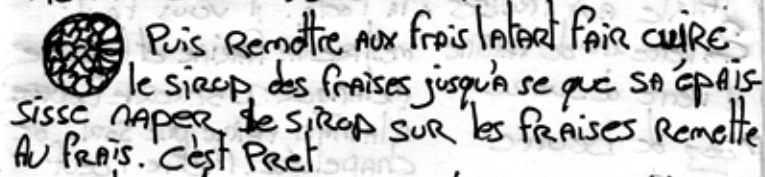 Puis Remettre AUX frais lATART fAIR CUIRE
le SIROP des fRAISES jusqu'A se que SA épAis-
sisse NAPER le SIROP SUR les fRAISES Remette
AU fRAIS. C'est PRet